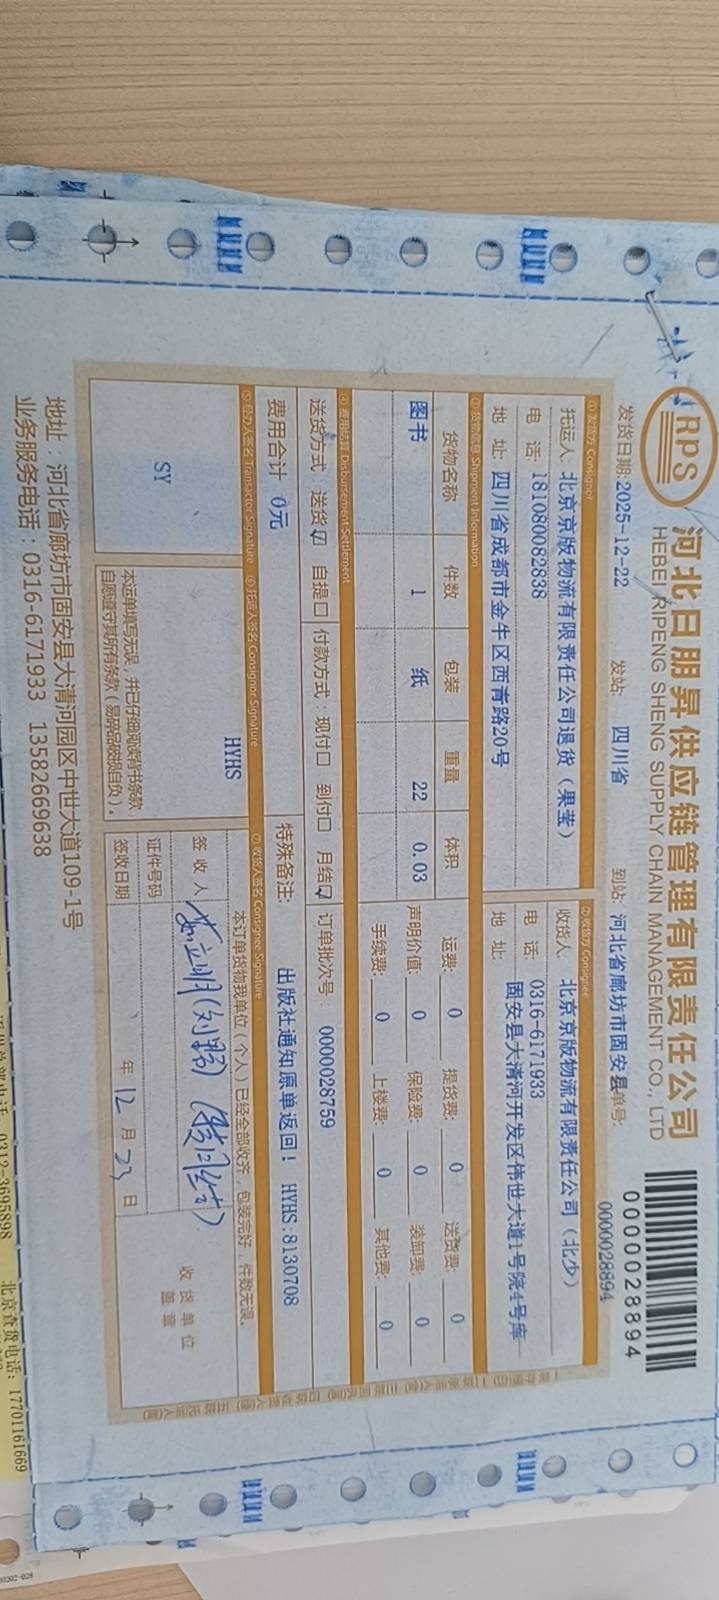 RPS
河北日朋昇供应链管理有限责任公司
HEBEI RIPENG SHENG SUPPLY CHAIN MANAGEMENT CO., LTD
0000028894
发货日期:2025-12-22 发站: 四川省 到站: 河北省廊坊市固安县 单号: 0000028894
① 发货方 Consignor ② 收货方 Consignee
托运人: 北京京版物流有限责任公司退货（果莹） 收货人: 北京京版物流有限责任公司（北少）
电 话: 18108008283​8 电 话: 0316-6171933
地 址: 四川省成都市金牛区西青路20号 地 址: 固安县大清河开发区伟世大道1号院4号库
③ 货物信息 Shipment Information
货物名称 件数 包装 重量 体积 运费: 0 提货费: 0 送货费: 0
图书 1 纸 22 0.03 声明价值: 0 保险费: 0 装卸费: 0
手续费: 0 上楼费: 0 其他费: 0
④ 费用结算 Disbursement Settlement
送货方式: 送货☑ 自提□ 付款方式: 现付□ 到付□ 月结☑ 订单批次号: 0000028759
费用合计 0元 特殊备注: 出版社通知原单返回! HYHS:8130708
⑤ 经办人签名 Transactor Signature ⑥ 托运人签名 Consignor Signature ⑦ 收货人签名 Consignee Signature
SY
HYHS
本运单填写无误，并已仔细阅读背书条款，
自愿遵守其所有条款（易碎品破损自负）。
本订单货物我单位（个人）已经全部收齐，包装完好，件数无误。
签 收 人
证件号码
签收日期 年 12 月 23 日
收货单位
盖 章
地址：河北省廊坊市固安县大清河园区中世大道109-1号
业务服务电话：0316-6171933 13582669638
0312-3695898 北京查货电话: 17701161669